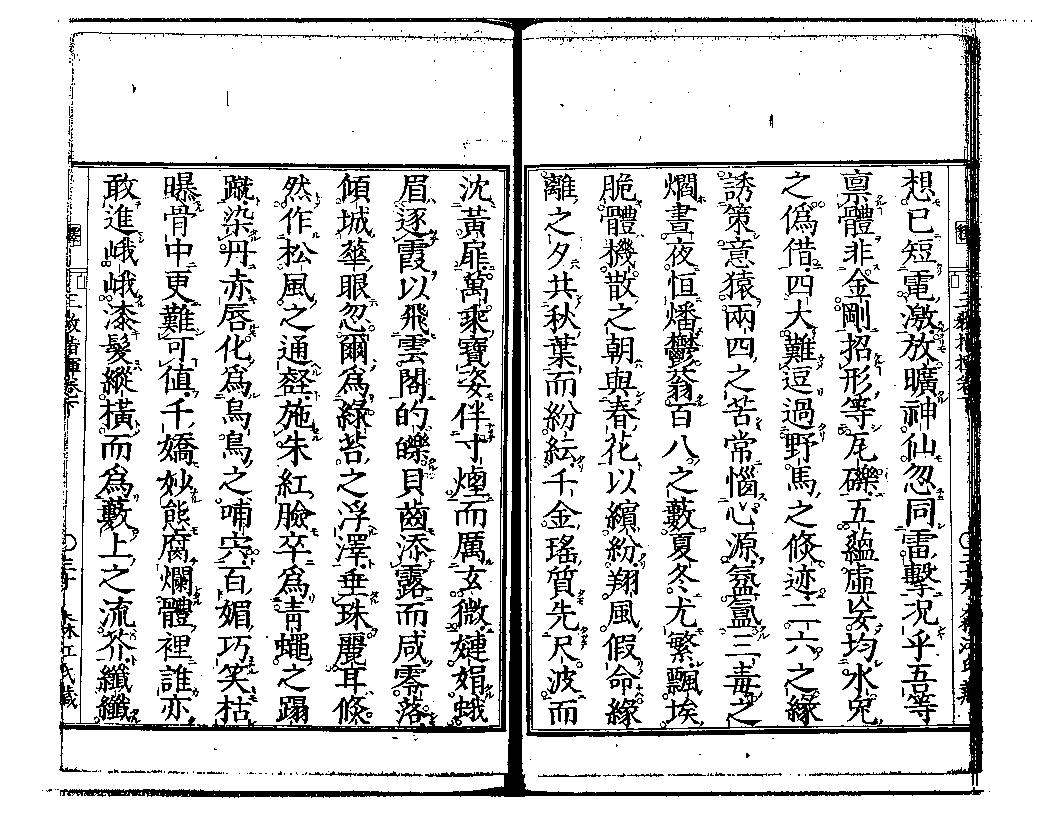 想已短電激放曠神仙忽同雷擊況乎吾等
稟體非金剛招形等瓦礫五蘊虛妄均水兔
之僞借四大難逗過野馬之倏迹二六之緣
誘策意猿兩四之苦常惱心源氤氳三毒之
爓晝夜恒燔鬱蓊百八之藪夏冬尤繁飄埃
脆體機散之朝與春花以繽紛翔風假命緣
離之夕共秋葉而紛紜千金瑤質先尺波而
沈黃扉萬乘寶姿伴寸煙而厲玄微婕娟蛾
眉逐霞以飛雲閣的皪貝齒添露而咸零落
傾城華眼忽爾爲綠苔之浮澤垂珠麗耳倏
然作松風之通壑施朱紅臉卒爲靑蠅之蹋
蹴染丹赤唇化爲烏鳥之哺宍百媚巧笑枯
曝骨中更難可値千嬌妙態腐爛體裡誰亦
敢進峨峨漆髮縱橫而爲藪上之流芥纖纖